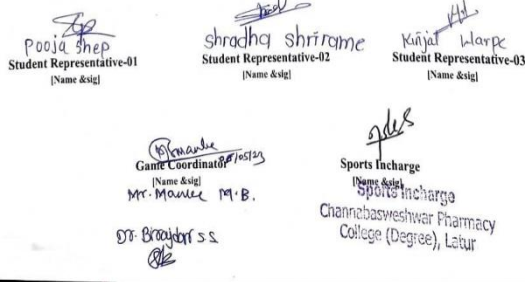 Pooja Shep
Student Representative-01
[Name &sig]
Shradha Shrirame
Student Representative-02
[Name &sig]
Kinjal Warpe
Student Representative-03
[Name &sig]
Game Coordinator
[Name &sig]
Mr. Manlee M.B.
Dr. Biradar S S
Sports Incharge
[Name &sig]
Sports Incharge
Channabasweshwar Pharmacy
College (Degree), Latur